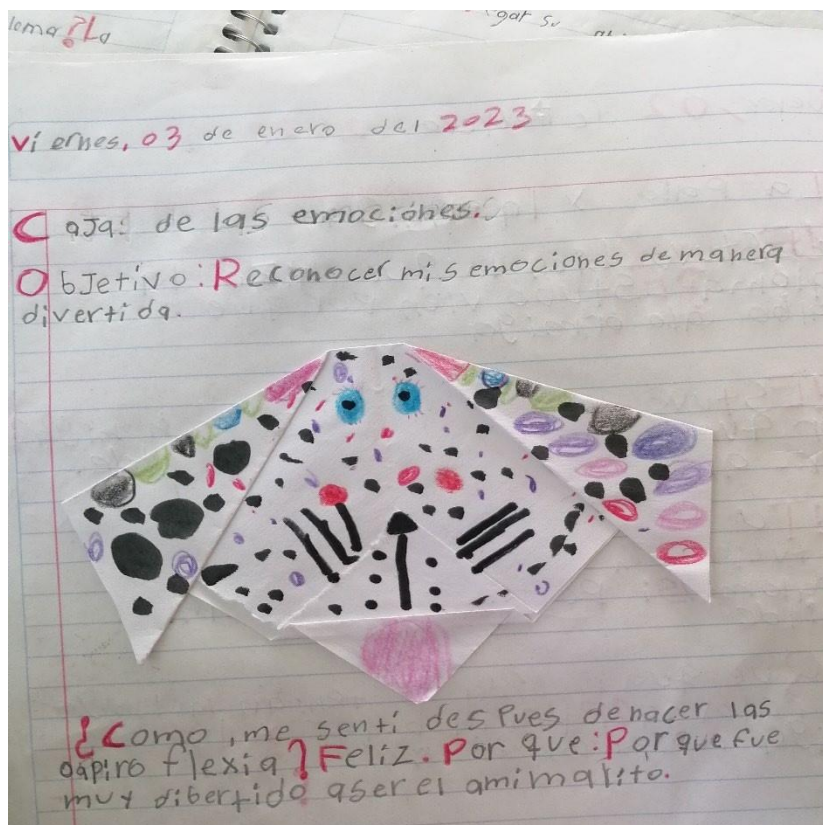 lema?La
gar su
Viernes, 03 de enero del 2023
Caja: de las emociónes.
Objetivo: Reconocer mis emociones de manera
divertida.
¿Como, me senti des Pues de hacer las
papiro flexia? Feliz. Por que: Por que fue
muy dibertido aser el amimalito.